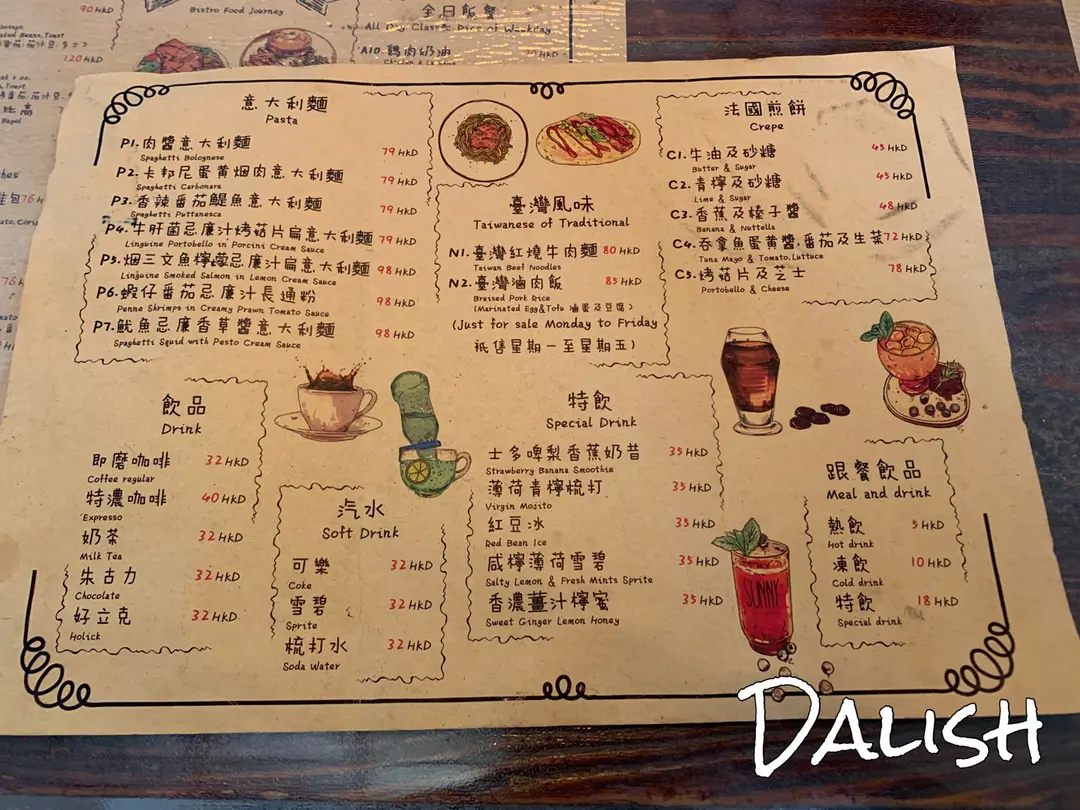 90 HKD
Bistro Food Journey
120 HKD
全日飯餐
All Day Classic Dine of Weekday
A10. 鷄肉奶油
意大利麵
Pasta
P1. 肉醬意大利麵 79 HKD
Spaghetti Bolognese
P2. 卡邦尼蛋黄烟肉意大利麵 79 HKD
Spaghetti Carbonara
P3. 香辣番茄鯷魚意大利麵 79 HKD
Spaghetti Puttanesca
P4. 牛肝菌忌廉汁烤菇片扁意大利麵 79 HKD
Linguine Portobello in Porcini Cream Sauce
P5. 烟三文魚檸檬忌廉汁扁意大利麵 98 HKD
Linguine Smoked Salmon in Lemon Cream Sauce
P6. 蝦仔番茄忌廉汁長通粉 98 HKD
Penne Shrimps in Creamy Prawn Tomato Sauce
P7. 魷魚忌廉香草醬意大利麵 98 HKD
Spaghetti Squid with Pesto Cream Sauce
臺灣風味
Taiwanese of Traditional
N1. 臺灣紅燒牛肉麵 80 HKD
Taiwan Beef Noodles
N2. 臺灣滷肉飯 85 HKD
Braised Pork Rice
(Marinated Egg&Tofu 滷蛋及豆腐)
(Just for sale Monday to Friday
衹售星期一至星期五)
法國煎餅
Crepe
C1. 牛油及砂糖 45 HKD
Butter & Sugar
C2. 青檸及砂糖 45 HKD
Lime & Sugar
C3. 香蕉及榛子醬 48 HKD
Banana & Nuttella
C4. 吞拿魚蛋黄醬,番茄及生菜 72 HKD
Tuna Mayo & Tomato.Luttuce
C5. 烤菇片及芝士 78 HKD
Portobello & Cheese
飲品
Drink
即磨咖啡 32 HKD
Coffee regular
特濃咖啡 40 HKD
Expresso
奶茶 32 HKD
Milk Tea
朱古力 32 HKD
Chocolate
好立克 32 HKD
Holick
汽水
Soft Drink
可樂 32 HKD
Coke
雪碧 32 HKD
Sprite
梳打水 32 HKD
Soda Water
特飲
Special Drink
士多啤梨香蕉奶昔 35 HKD
Strawberry Banana Smoothie
薄荷青檸梳打 35 HKD
Virgin Mojito
紅豆冰 35 HKD
Red Bean Ice
咸檸薄荷雪碧 35 HKD
Salty Lemon & Fresh Mints Sprite
香濃薑汁檸蜜 35 HKD
Sweet Ginger Lemon Honey
跟餐飲品
Meal and drink
熱飲 5 HKD
Hot drink
凍飲 10 HKD
Cold drink
特飲 18 HKD
Special drink
SUNNY
DALISH